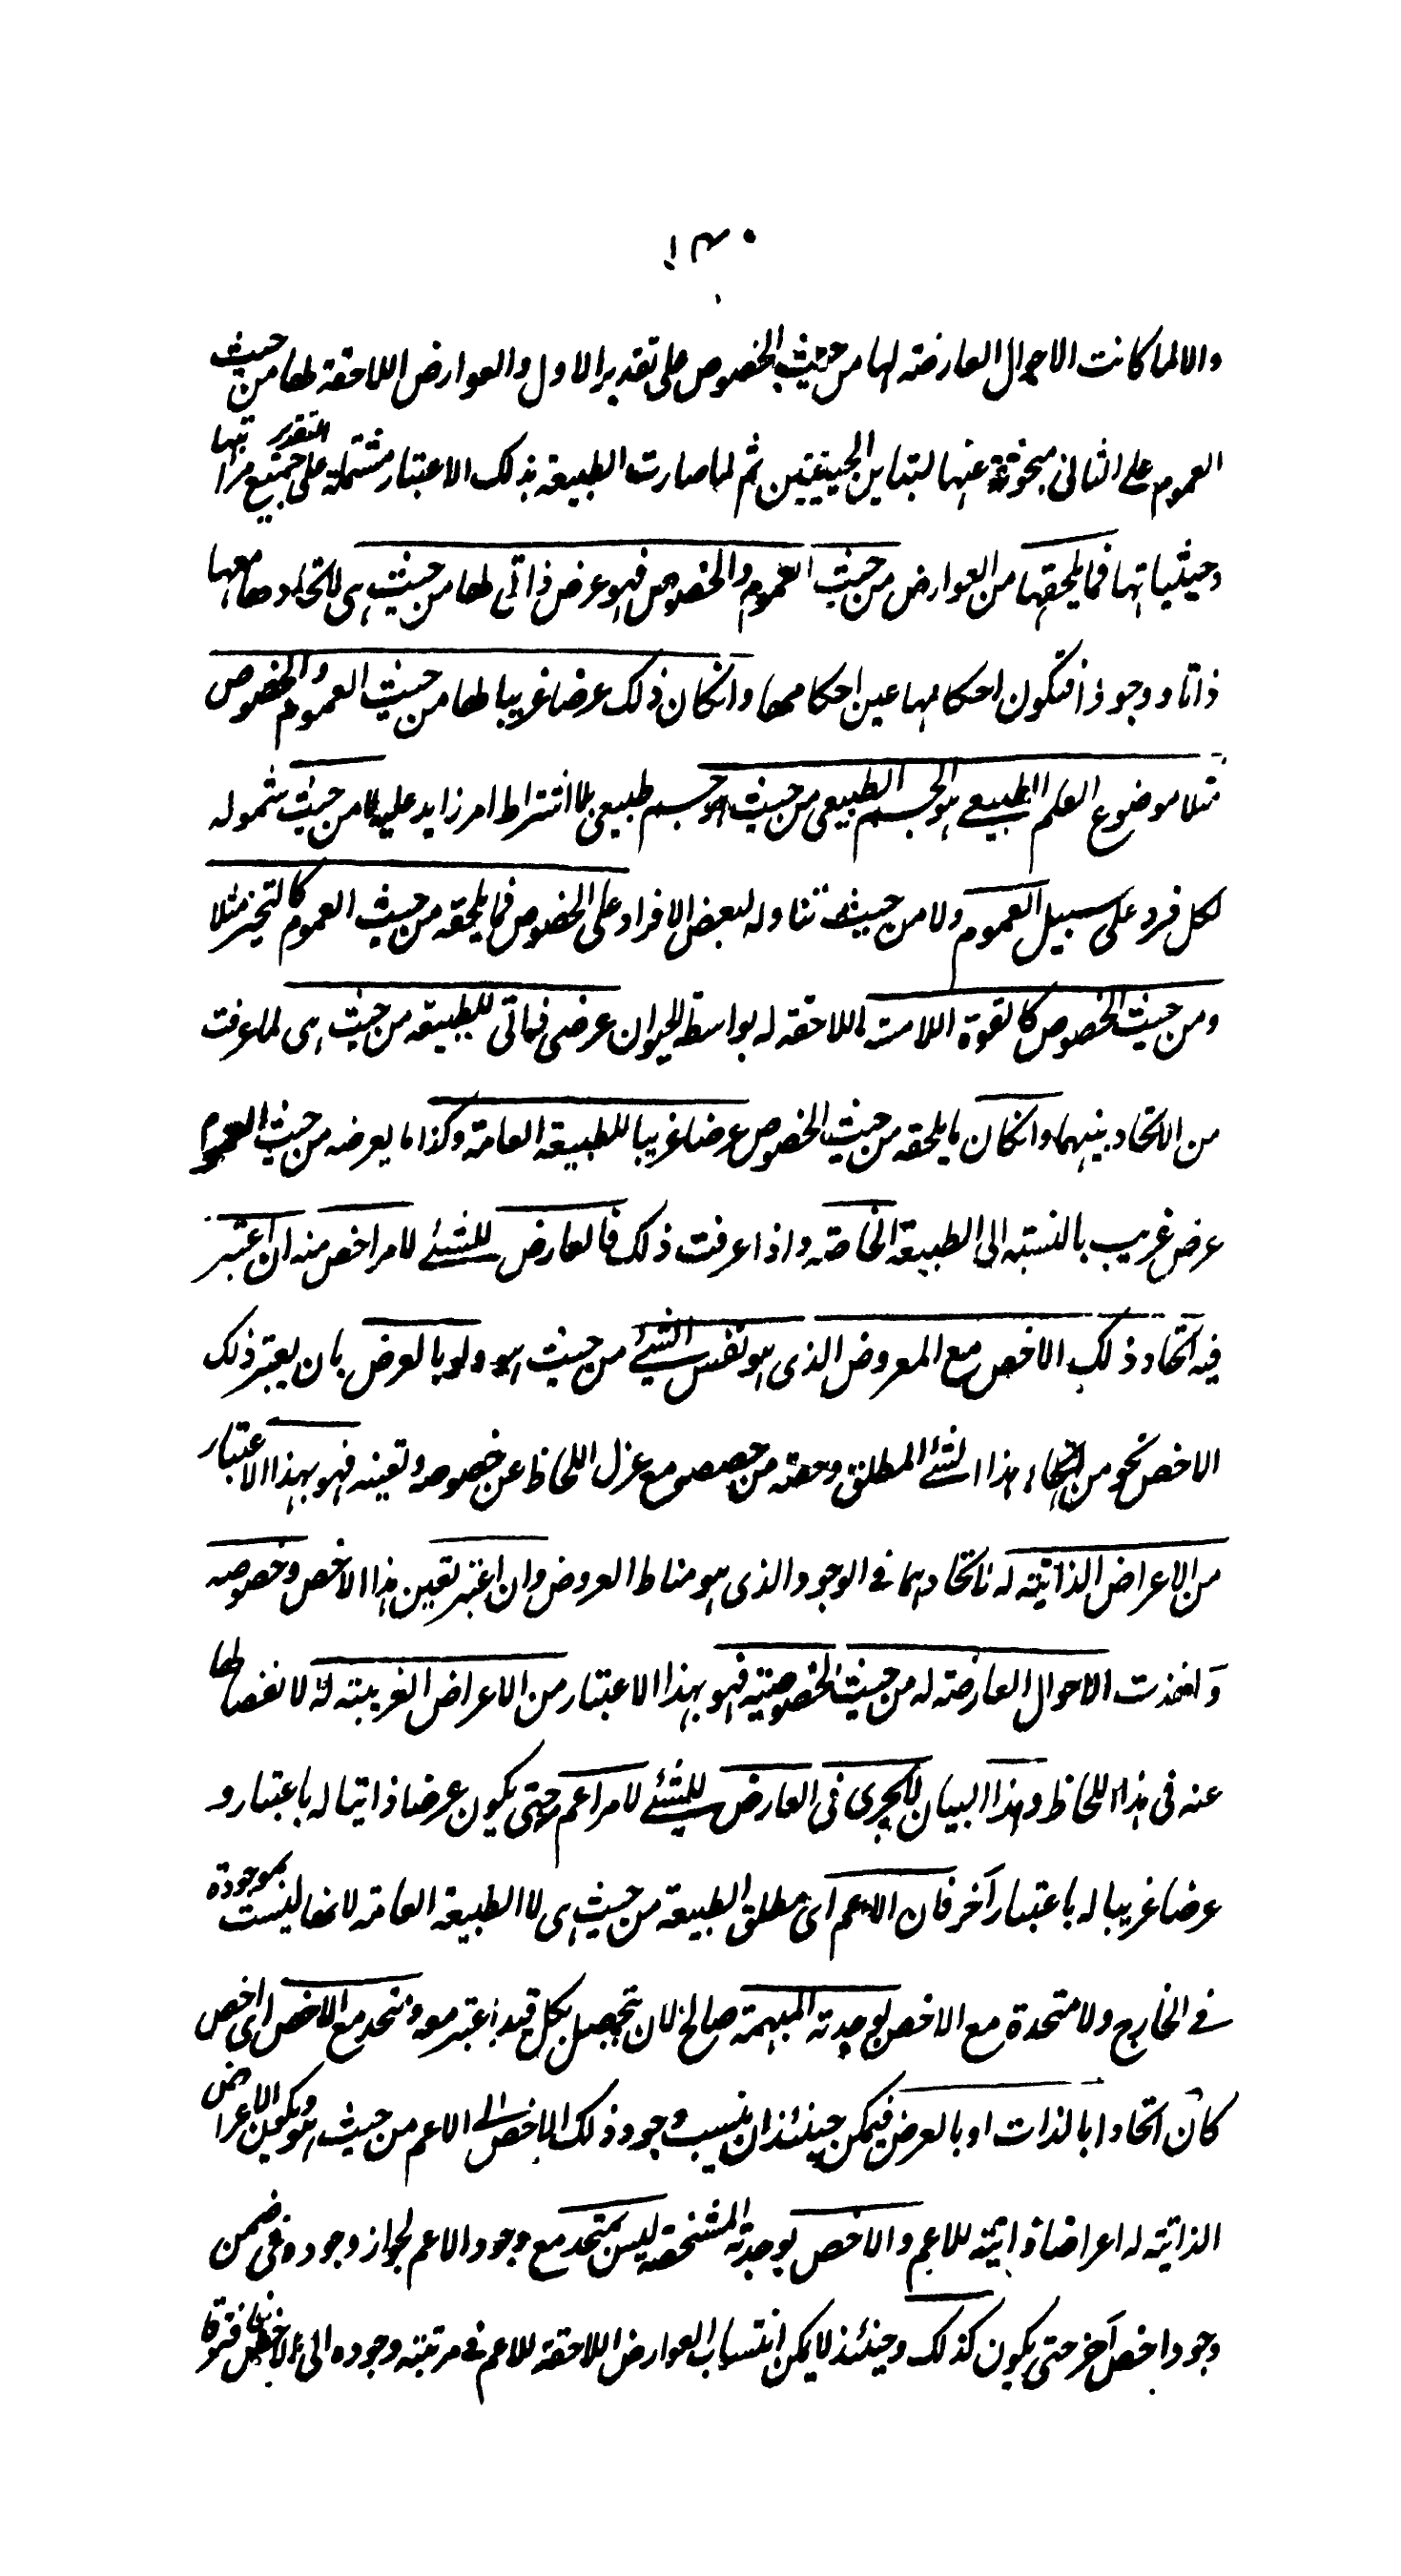 ١٣٠
والا لما كانت الاحوال العارضة لها من حيث الخصوص على تقدير الاول والعوارض اللاحقة لها من حيث
العموم على الثانى مبحوثة عنها لتباين الحيثيتين ثم لما صارت الطبيعة بذلك الاعتبار مشتملة على جميع مراتبها
وحيثياتها فما يلحقها من العوارض من حيث العموم والخصوص فهو عرض ذاتى لها من حيث هى لاتحادها معها
ذاتا ووجودا فتكون احكامها عين احكامها وانكان ذلك عرضا غريبا لها من حيث العموم والخصوص
مثلا موضوع العلم الطبيعي هو الجسم الطبيعى من حيث هو جسم طبيعى بلا اشتراط امر زايد عليه لا من حيث شموله
لكل فرد على سبيل العموم ولا من حيث تناوله لبعض الافراد على الخصوص فما يلحقه من حيث العموم كالتحيز مثلا
ومن حيث الخصوص كالقوة اللامسة اللاحقة له بواسطة الحيوان عرض ذاتى للطبيعة من حيث هى لما عرفت
من الاتحاد بينهما وانكان ما يلحقه من حيث الخصوص عرضا غريبا للطبيعة العامة وكذا ما يعرضه من حيث العموم
عرض غريب بالنسبة الى الطبيعة الخاصة واذا عرفت ذلك فالعارض للشئے لامر اخص منه ان اعتبر
فيه اتحاد ذلك الاخص مع المعروض الذى هو نفس الشئے من حيث هو ولو بالعرض بان يعتبر ذلك
الاخص نحو من انحاء هذا الشئے المطلق وحصة من حصصه مع عزل اللحاظ عن خصوصه وتعينه فهو بهذا الاعتبار
من الاعراض الذاتية له لاتحادهما فے الوجود الذى هو مناط العروض وان اعتبر تعين هذا الاخص وخصوصه
واخذت الاحوال العارضة له من حيث الخصوصية فهو بهذا الاعتبار من الاعراض الغريبة له لانفصالها
عنه فى هذا اللحاظ وهذا البيان لا يجرى فى العارض للشئے لامر اعم حتى يكون عرضا ذاتيا له باعتبار و
عرضا غريبا له باعتبار آخر فان الاعم اى مطلق الطبيعة من حيث هى لا الطبيعة العامة لانها ليست بموجودة
فے الخارج ولا متحدة مع الاخص بوحدته المبهمة صالح لان يتحصل بكل قيد اعتبر معه ومتحد مع الاخص اى اخص
كان اتحادا بالذات او بالعرض فيمكن حينئذ ان ينسب وجود ذلك الاخص الى الاعم من حيث هو ويكون الاعراض
الذاتية له اعراضا ذاتية للاعم والاخص بوحدته المشخصة ليس بمتحد مع وجود الاعم لجواز وجوده فى ضمن
وجود اخص آخر حتى يكون كذلك وحينئذ لا يمكن انتساب العوارض اللاحقة للاعم فے مرتبة وجوده الى الاخص